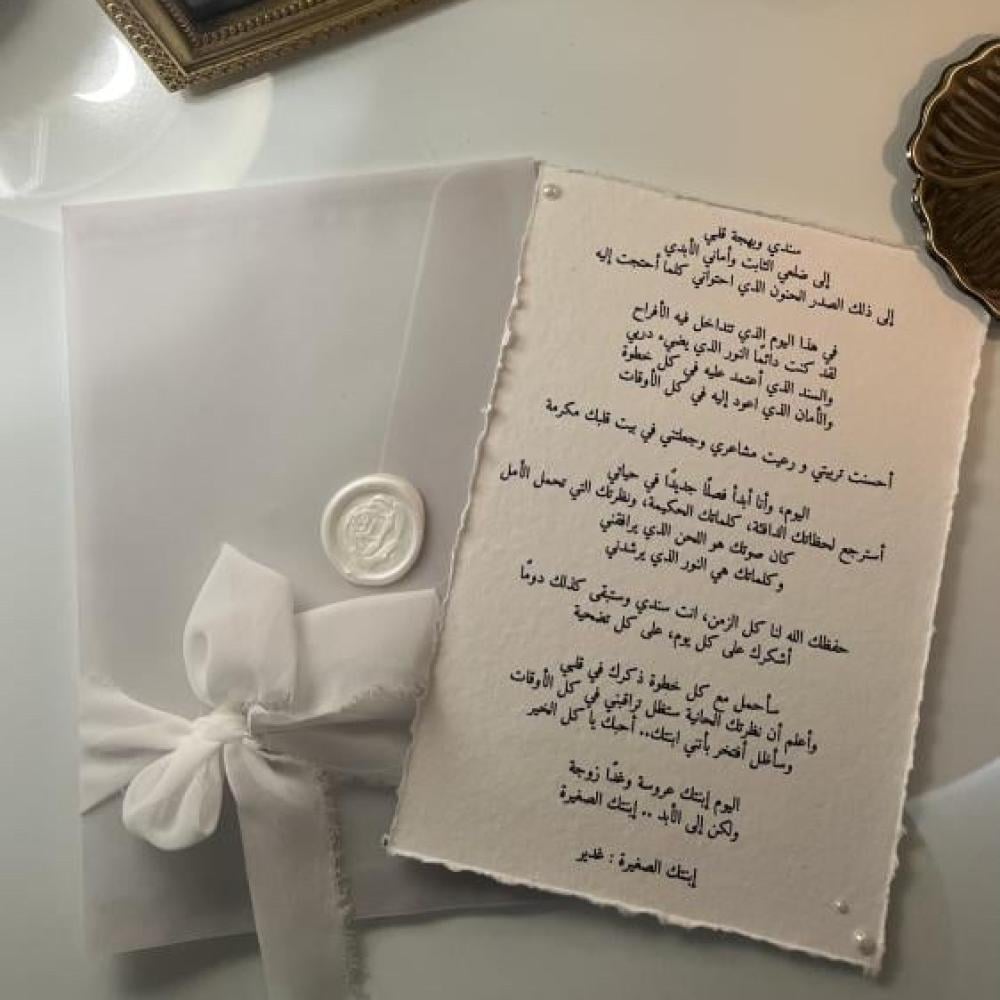 سندي وبهجة قلبي
إلى ضلعي الثابت وأماني الأبدي
إلى ذلك الصدر الحنون الذي احتواني كلما أحتجت إليه
في هذا اليوم الذي تتداخل فيه الأفراح
لقد كنت دائمًا النور الذي يضيء دربي
والسند الذي أعتمد عليه في كل خطوة
والأمان الذي اعود إليه في كل الأوقات
أحسنت تربيتي و رعيت مشاعري وجعلتني في بيت قلبك مكرمة
اليوم، وأنا أبدأ فصلًا جديدًا في حياتي
أسترجع لحظاتك الدافئة، كلماتك الحكيمة، ونظرتك التي تحمل الأمل
كان صوتك هو اللحن الذي يرافقني
وكلماتك هي النور الذي يرشدني
حفظك الله لنا كل الزمن، انت سندي وستبقى كذلك دومًا
أشكرك على كل يوم، على كل تضحية
سأحمل مع كل خطوة ذكرك في قلبي
وأعلم أن نظرتك الحانية ستظل تراقبني في كل الأوقات
وسأظل أفتخر بأنني ابنتك.. أحبك يا كل الخير
اليوم إبنتك عروسة وغدًا زوجة
ولكن إلى الأبد .. إبنتك الصغيرة
إبنتك الصغيرة : غدير